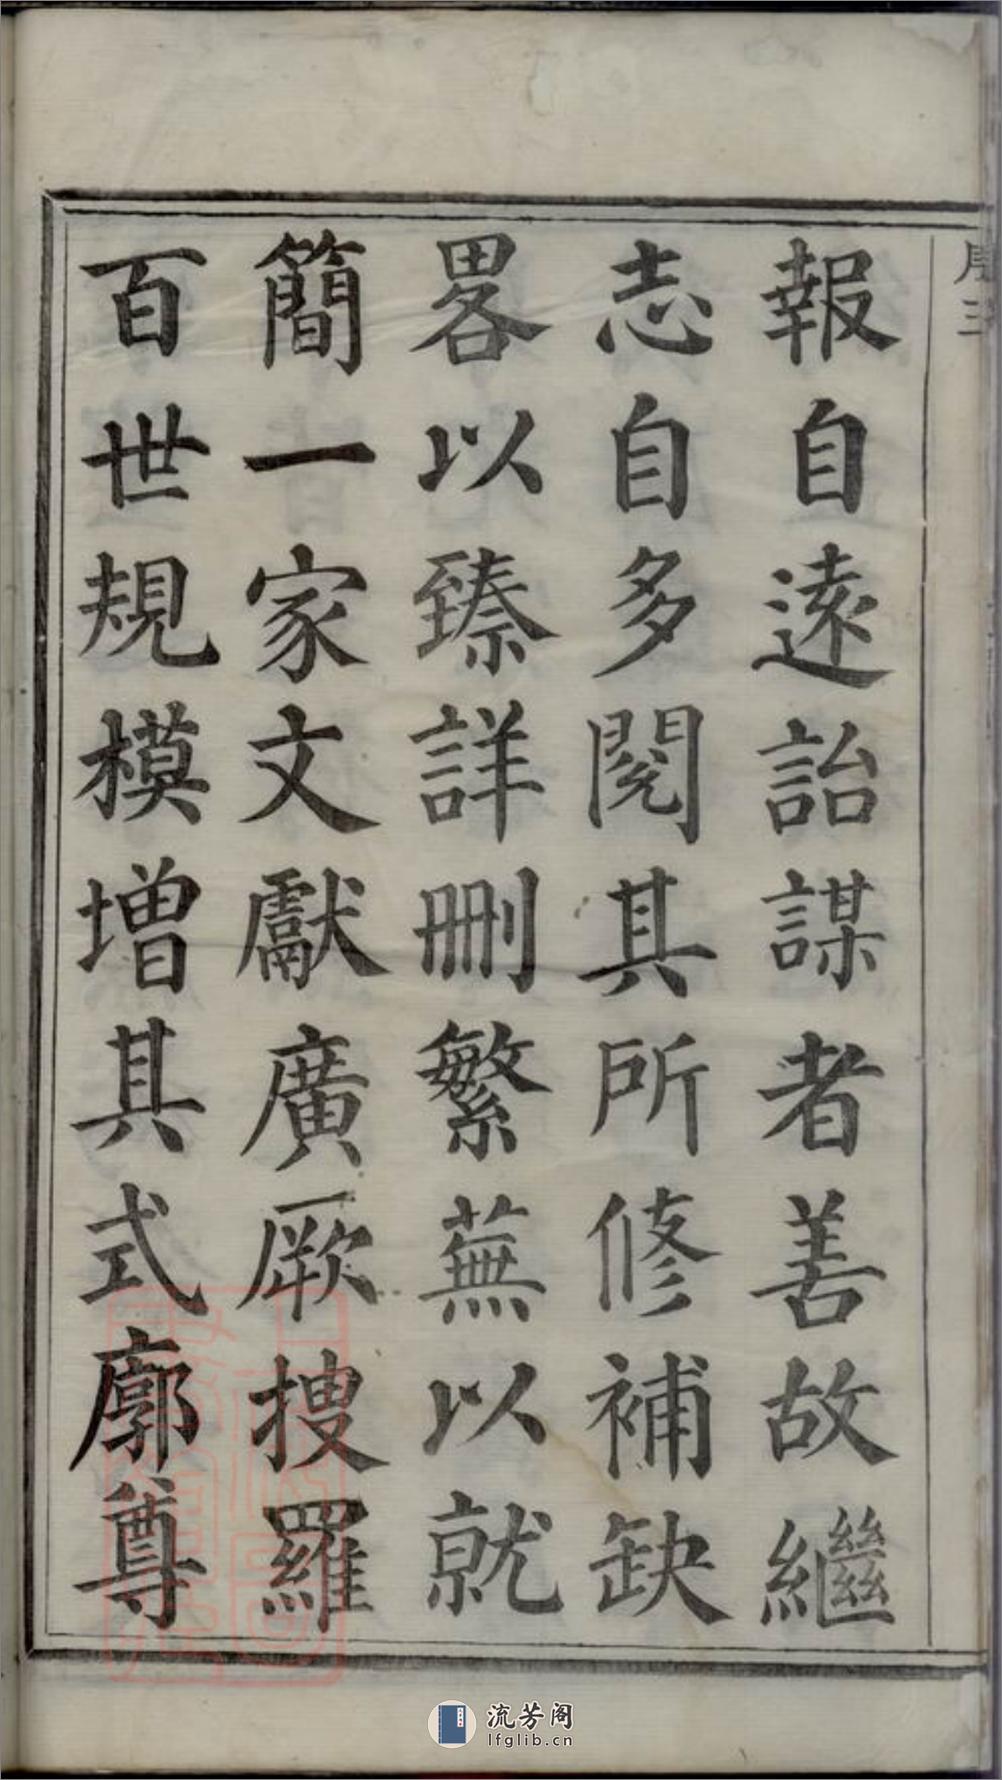 報自遠詒謀者善故繼
志自多閱其所修補缺
畧以臻詳刪繁蕪以就
簡一家文獻廣厥搜羅
百世規模增其式廓尊
序三
流芳阁
lfglib.cn